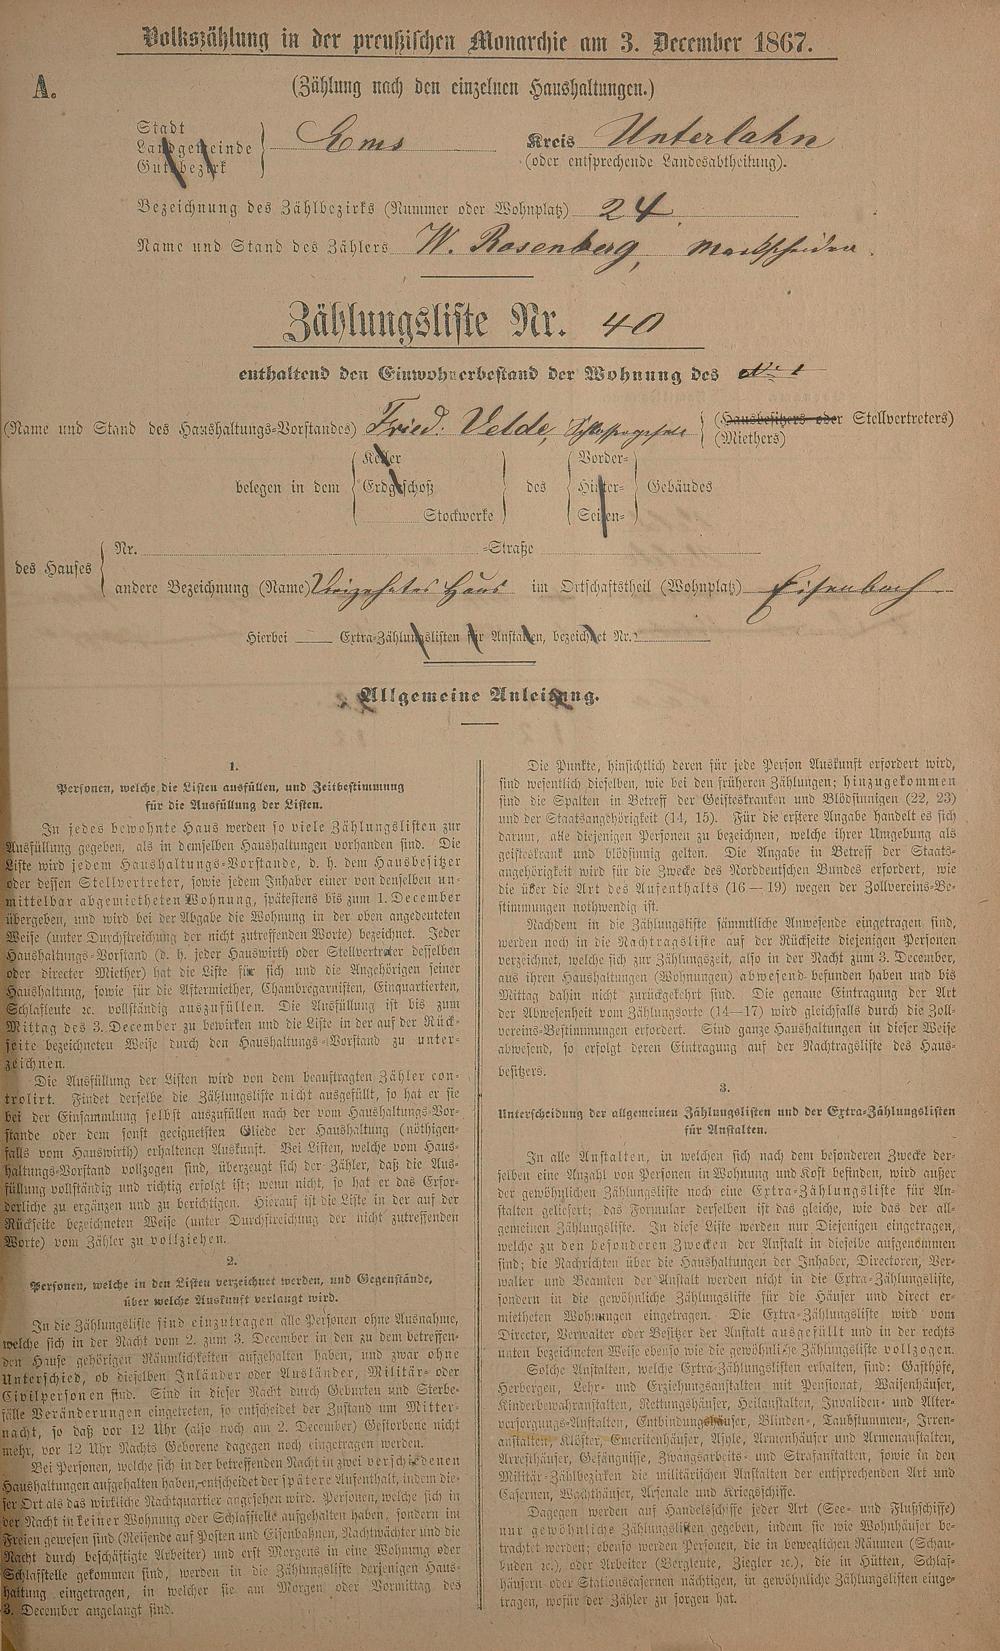 Volkszählung in der preußischen Monarchie am 3. December 1867.
A.
(Zählung nach den einzelnen Haushaltungen.)
Stadt
Landgemeinde
Gutsbezirk
Ems
Kreis Unterlahn
(oder entsprechende Landesabtheilung).
Bezeichnung des Zählbezirks (Nummer oder Wohnplatz) 24
Name und Stand des Zählers W. Rosenberg, Markscheider.
Zählungsliste Nr. 40
enthaltend den Einwohnerbestand der Wohnung des No 1
(Name und Stand des Haushaltungs-Vorstandes) Fried. Velde,
(Hausbesitzers oder Stellvertreters)
(Miethers)
belegen in dem
Keller
Erdgeschoß
Stockwerke
des
Vorder-
Hinter-
Seiten-
Gebäudes
des Hauses
Nr. -Straße
andere Bezeichnung (Name) Haus im Ortschaftstheil (Wohnplatz) Eisenbach
Hierbei Extra-Zählungslisten für Anstalten, bezeichnet Nr.
Allgemeine Anleitung.
1.
Personen, welche die Listen ausfüllen, und Zeitbestimmung
für die Ausfüllung der Listen.
In jedes bewohnte Haus werden so viele Zählungslisten zur
Ausfüllung gegeben, als in demselben Haushaltungen vorhanden sind. Die
Liste wird jedem Haushaltungs-Vorstande, d. h. dem Hausbesitzer
oder dessen Stellvertreter, sowie jedem Inhaber einer von denselben un-
mittelbar abgemietheten Wohnung, spätestens bis zum 1. December
übergeben, und wird bei der Abgabe die Wohnung in der oben angedeuteten
Weise (unter Durchstreichung der nicht zutreffenden Worte) bezeichnet. Jeder
Haushaltungs-Vorstand (d. h. jeder Hauswirth oder Stellvertreter desselben
oder directer Miether) hat die Liste für sich und die Angehörigen seiner
Haushaltung, sowie für die Aftermiether, Chambregarnisten, Einquartierten,
Schlafleute ꝛc. vollständig auszufüllen. Die Ausfüllung ist bis zum
Mittag des 3. December zu bewirken und die Liste in der auf der Rück-
seite bezeichneten Weise durch den Haushaltungs-Vorstand zu unter-
zeichnen.
Die Ausfüllung der Listen wird von dem beauftragten Zähler con-
trolirt. Findet derselbe die Zählungsliste nicht ausgefüllt, so hat er sie
bei der Einsammlung selbst auszufüllen nach der vom Haushaltungs-Vor-
stande oder dem sonst geeignetsten Gliede der Haushaltung (nöthigen-
falls vom Hauswirth) erhaltenen Auskunft. Bei Listen, welche vom Haus-
haltungs-Vorstand vollzogen sind, überzeugt sich der Zähler, daß die Aus-
füllung vollständig und richtig erfolgt ist; wenn nicht, so hat er das Erfor-
derliche zu ergänzen und zu berichtigen. Hierauf ist die Liste in der auf der
Rückseite bezeichneten Weise (unter Durchstreichung der nicht zutreffenden
Worte) vom Zähler zu vollziehen.
2.
Personen, welche in den Listen verzeichnet werden, und Gegenstände,
über welche Auskunft verlangt wird.
In die Zählungsliste sind einzutragen alle Personen ohne Ausnahme,
welche sich in der Nacht vom 2. zum 3. December in den zu dem betreffen-
den Hause gehörigen Räumlichkeiten aufgehalten haben, und zwar ohne
Unterschied, ob dieselben Inländer oder Ausländer, Militär- oder
Civilpersonen sind. Sind in dieser Nacht durch Geburten und Sterbe-
fälle Veränderungen eingetreten, so entscheidet der Zustand um Mitter-
nacht, so daß vor 12 Uhr (also noch am 2. December) Gestorbene nicht
mehr, vor 12 Uhr Nachts Geborene dagegen noch eingetragen werden.
Bei Personen, welche sich in der betreffenden Nacht in zwei verschiedenen
Haushaltungen aufgehalten haben, entscheidet der spätere Aufenthalt, indem die-
ser Ort als das wirkliche Nachtquartier angesehen wird. Personen, welche sich in
der Nacht in keiner Wohnung oder Schlafstelle aufgehalten haben, sondern im
Freien gewesen sind (Reisende auf Posten und Eisenbahnen, Nachtwächter und die
Nacht durch beschäftigte Arbeiter) und erst Morgens in eine Wohnung oder
Schlafstelle gekommen sind, werden in die Zählungsliste derjenigen Haus-
haltung eingetragen, in welcher sie am Morgen oder Vormittag des
3. December angelangt sind.
Die Punkte, hinsichtlich deren für jede Person Auskunft erfordert wird,
sind wesentlich dieselben, wie bei den früheren Zählungen; hinzugekommen
sind die Spalten in Betreff der Geisteskranken und Blödsinnigen (22, 23)
und der Staatsangehörigkeit (14, 15). Für die erstere Angabe handelt es sich
darum, alle diejenigen Personen zu bezeichnen, welche ihrer Umgebung als
geisteskrank und blödsinnig gelten. Die Angabe in Betreff der Staats-
angehörigkeit wird für die Zwecke des Norddeutschen Bundes erfordert, wie
die über die Art des Aufenthalts (16—19) wegen der Zollvereins-Be-
stimmungen nothwendig ist.
Nachdem in die Zählungsliste sämmtliche Anwesende eingetragen sind,
werden noch in die Nachtragsliste auf der Rückseite diejenigen Personen
verzeichnet, welche sich zur Zählungszeit, also in der Nacht zum 3. December,
aus ihren Haushaltungen (Wohnungen) abwesend befunden haben und bis
Mittag dahin nicht zurückgekehrt sind. Die genaue Eintragung der Art
der Abwesenheit vom Zählungsorte (14—17) wird gleichfalls durch die Zoll-
vereins-Bestimmungen erfordert. Sind ganze Haushaltungen in dieser Weise
abwesend, so erfolgt deren Eintragung auf der Nachtragsliste des Haus-
besitzers.
3.
Unterscheidung der allgemeinen Zählungslisten und der Extra-Zählungslisten
für Anstalten.
In alle Anstalten, in welchen sich nach dem besonderen Zwecke der-
selben eine Anzahl von Personen in Wohnung und Kost befinden, wird außer
der gewöhnlichen Zählungsliste noch eine Extra-Zählungsliste für An-
stalten geliefert; das Formular derselben ist das gleiche, wie das der all-
gemeinen Zählungsliste. In diese Liste werden nur Diejenigen eingetragen,
welche zu den besonderen Zwecken der Anstalt in dieselbe aufgenommen
sind; die Nachrichten über die Haushaltungen der Inhaber, Directoren, Ver-
walter und Beamten der Anstalt werden nicht in die Extra-Zählungsliste,
sondern in die gewöhnliche Zählungsliste für die Häuser und direct er-
mietheten Wohnungen eingetragen. Die Extra-Zählungsliste wird vom
Director, Verwalter oder Besitzer der Anstalt ausgefüllt und in der rechts
unten bezeichneten Weise ebenso wie die gewöhnliche Zählungsliste vollzogen.
Solche Anstalten, welche Extra-Zählungslisten erhalten, sind: Gasthöfe,
Herbergen, Lehr- und Erziehungsanstalten mit Pensionat, Waisenhäuser,
Kinderbewahranstalten, Rettungshäuser, Heilanstalten, Invaliden- und Alter-
versorgungs-Anstalten, Entbindungshäuser, Blinden-, Taubstummen-, Irren-
anstalten, Klöster, Emeritenhäuser, Asyle, Armenhäuser und Armenanstalten,
Arresthäuser, Gefängnisse, Zwangsarbeits- und Strafanstalten, sowie in den
Militär-Zählbezirken die militärischen Anstalten der entsprechenden Art und
Casernen, Wachthäuser, Arsenale und Kriegsschiffe.
Dagegen werden auf Handelsschiffe jeder Art (See- und Flußschiffe)
nur gewöhnliche Zählungslisten gegeben, indem sie wie Wohnhäuser be-
trachtet werden; ebenso werden Personen, die in beweglichen Räumen (Schau-
buden ꝛc.), oder Arbeiter (Bergleute, Ziegler ꝛc.), die in Hütten, Schlaf-
häusern oder Stationscasernen nächtigen, in gewöhnliche Zählungslisten einge-
tragen, wofür der Zähler zu sorgen hat.